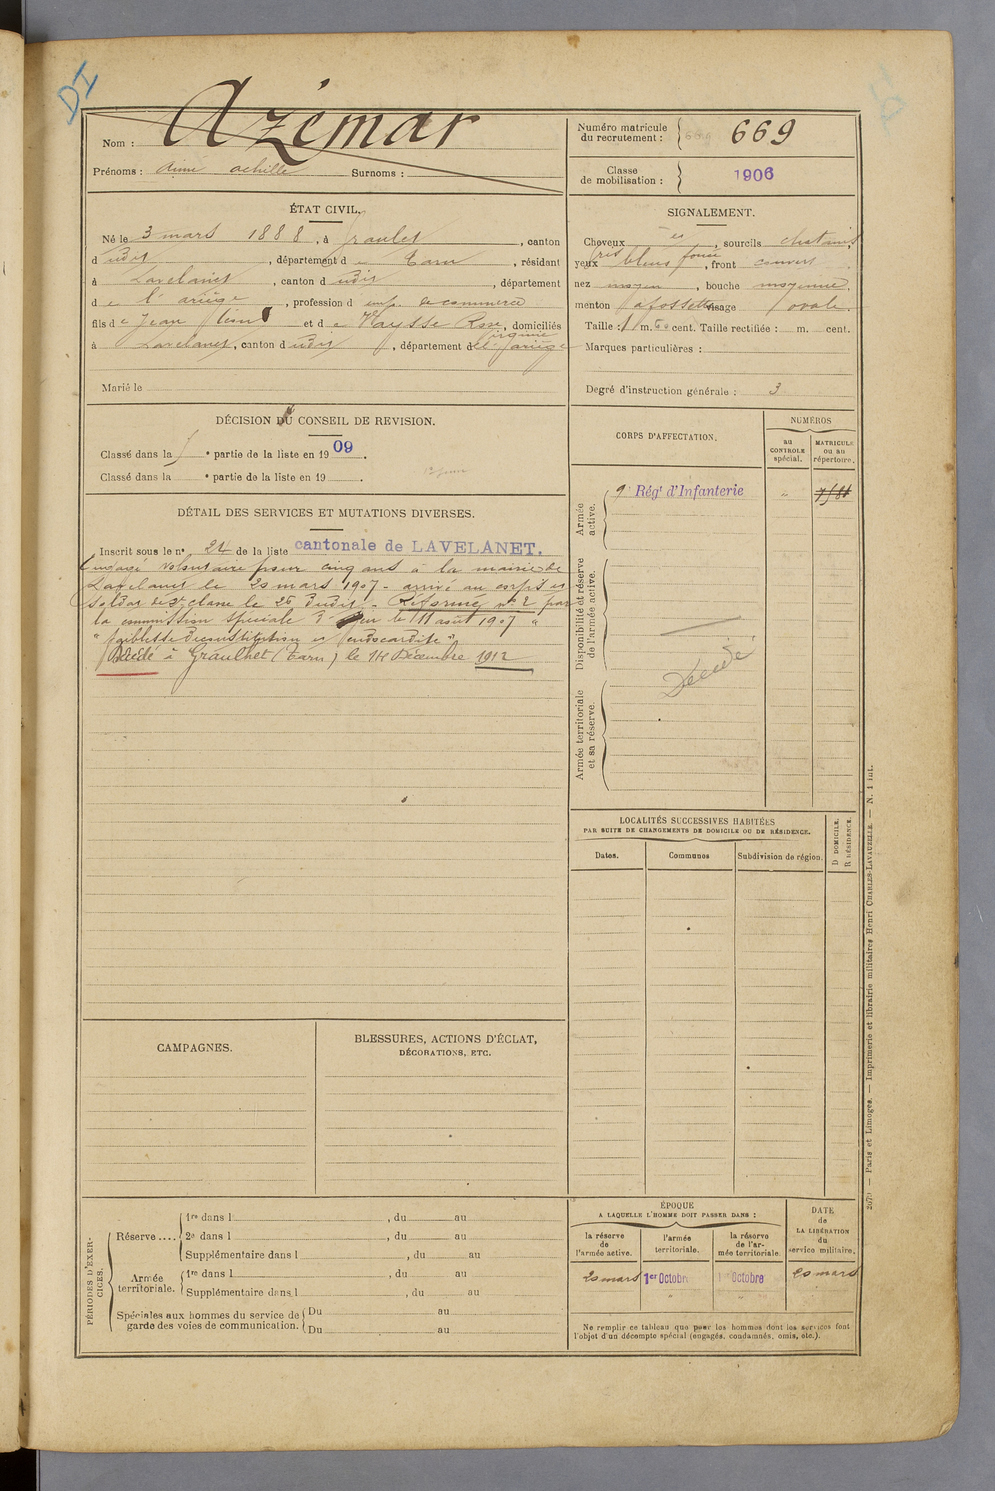 DI
Nom : Azémar
Prénoms : aimé achille Surnoms :
Numéro matricule
du recrutement : 669
Classe
de mobilisation : 1906
ÉTAT CIVIL.
Né le 3 mars 1888, à Graulet, canton
dudit, département de Tarn, résidant
à Lavelanet, canton dudit, département
de l'ariège, profession d emp. de commerce
fils de Jean et de Vaysse Rose virginie, domiciliés
à Lavelanet, canton dudit, département de l'ariège
Marié le
SIGNALEMENT.
Cheveux, sourcils chatains
yeux bleus foncé, front couvert
nez moyen, bouche moyenne.
menton à fossette visage ovale.
Taille : 1 m. cent. Taille rectifiée : m. cent.
Marques particulières :
Degré d'instruction générale : 3
DÉCISION DU CONSEIL DE REVISION.
Classé dans la e partie de la liste en 1909.
Classé dans la e partie de la liste en 19 .
DÉTAIL DES SERVICES ET MUTATIONS DIVERSES.
Inscrit sous le n° 24 de la liste cantonale de LAVELANET.
Engagé volontaire pour cinq ans à la mairie de
Lavelanet le 20 mars 1907 - arrivé au corps et
soldat de 2e classe le 26 dudit. - Réformé n° 2 par
la commission spéciale d le 11 août 1907 "
" faiblesse de constitution et endocardite ".
Décédé à Graulhet (Tarn) le 14 Décembre 1912
CORPS D'AFFECTATION.
NUMÉROS
au
CONTROLE
spécial.
MATRICULE
ou au
répertoire.
Armée
active.
9e Régt d'Infanterie "
Disponibilité et réserve
de l'armée active.
Décédé
Armée territoriale
et sa réserve.
LOCALITÉS SUCCESSIVES HABITÉES
PAR SUITE DE CHANGEMENTS DE DOMICILE OU DE RÉSIDENCE.
Dates.
Communes
Subdivision de région.
D DOMICILE.
R RÉSIDENCE.
CAMPAGNES.
BLESSURES, ACTIONS D'ÉCLAT,
DÉCORATIONS, ETC.
PÉRIODES D'EXER-
CICES.
Réserve ....
1re dans l , du au
2e dans l , du au
Supplémentaire dans l , du au
Armée
territoriale.
1re dans l , du au
Supplémentaire dans l , du au
Spéciales aux hommes du service de
garde des voies de communication.
Du au
Du au
ÉPOQUE
A LAQUELLE L'HOMME DOIT PASSER DANS :
la réserve
de
l'armée active.
l'armée
territoriale.
la réserve
de l'ar-
mée territoriale.
DATE
de
LA LIBÉRATION
du
service militaire.
20 mars
1er Octobre
Octobre
20 mars
Ne remplir ce tableau que pour les hommes dont les services font
l'objet d'un décompte spécial (engagés, condamnés, omis, etc.).
Paris et Limoges. — Imprimerie et librairie militaires Henri CHARLES-LAVAUZELLE. — N. 1 int.